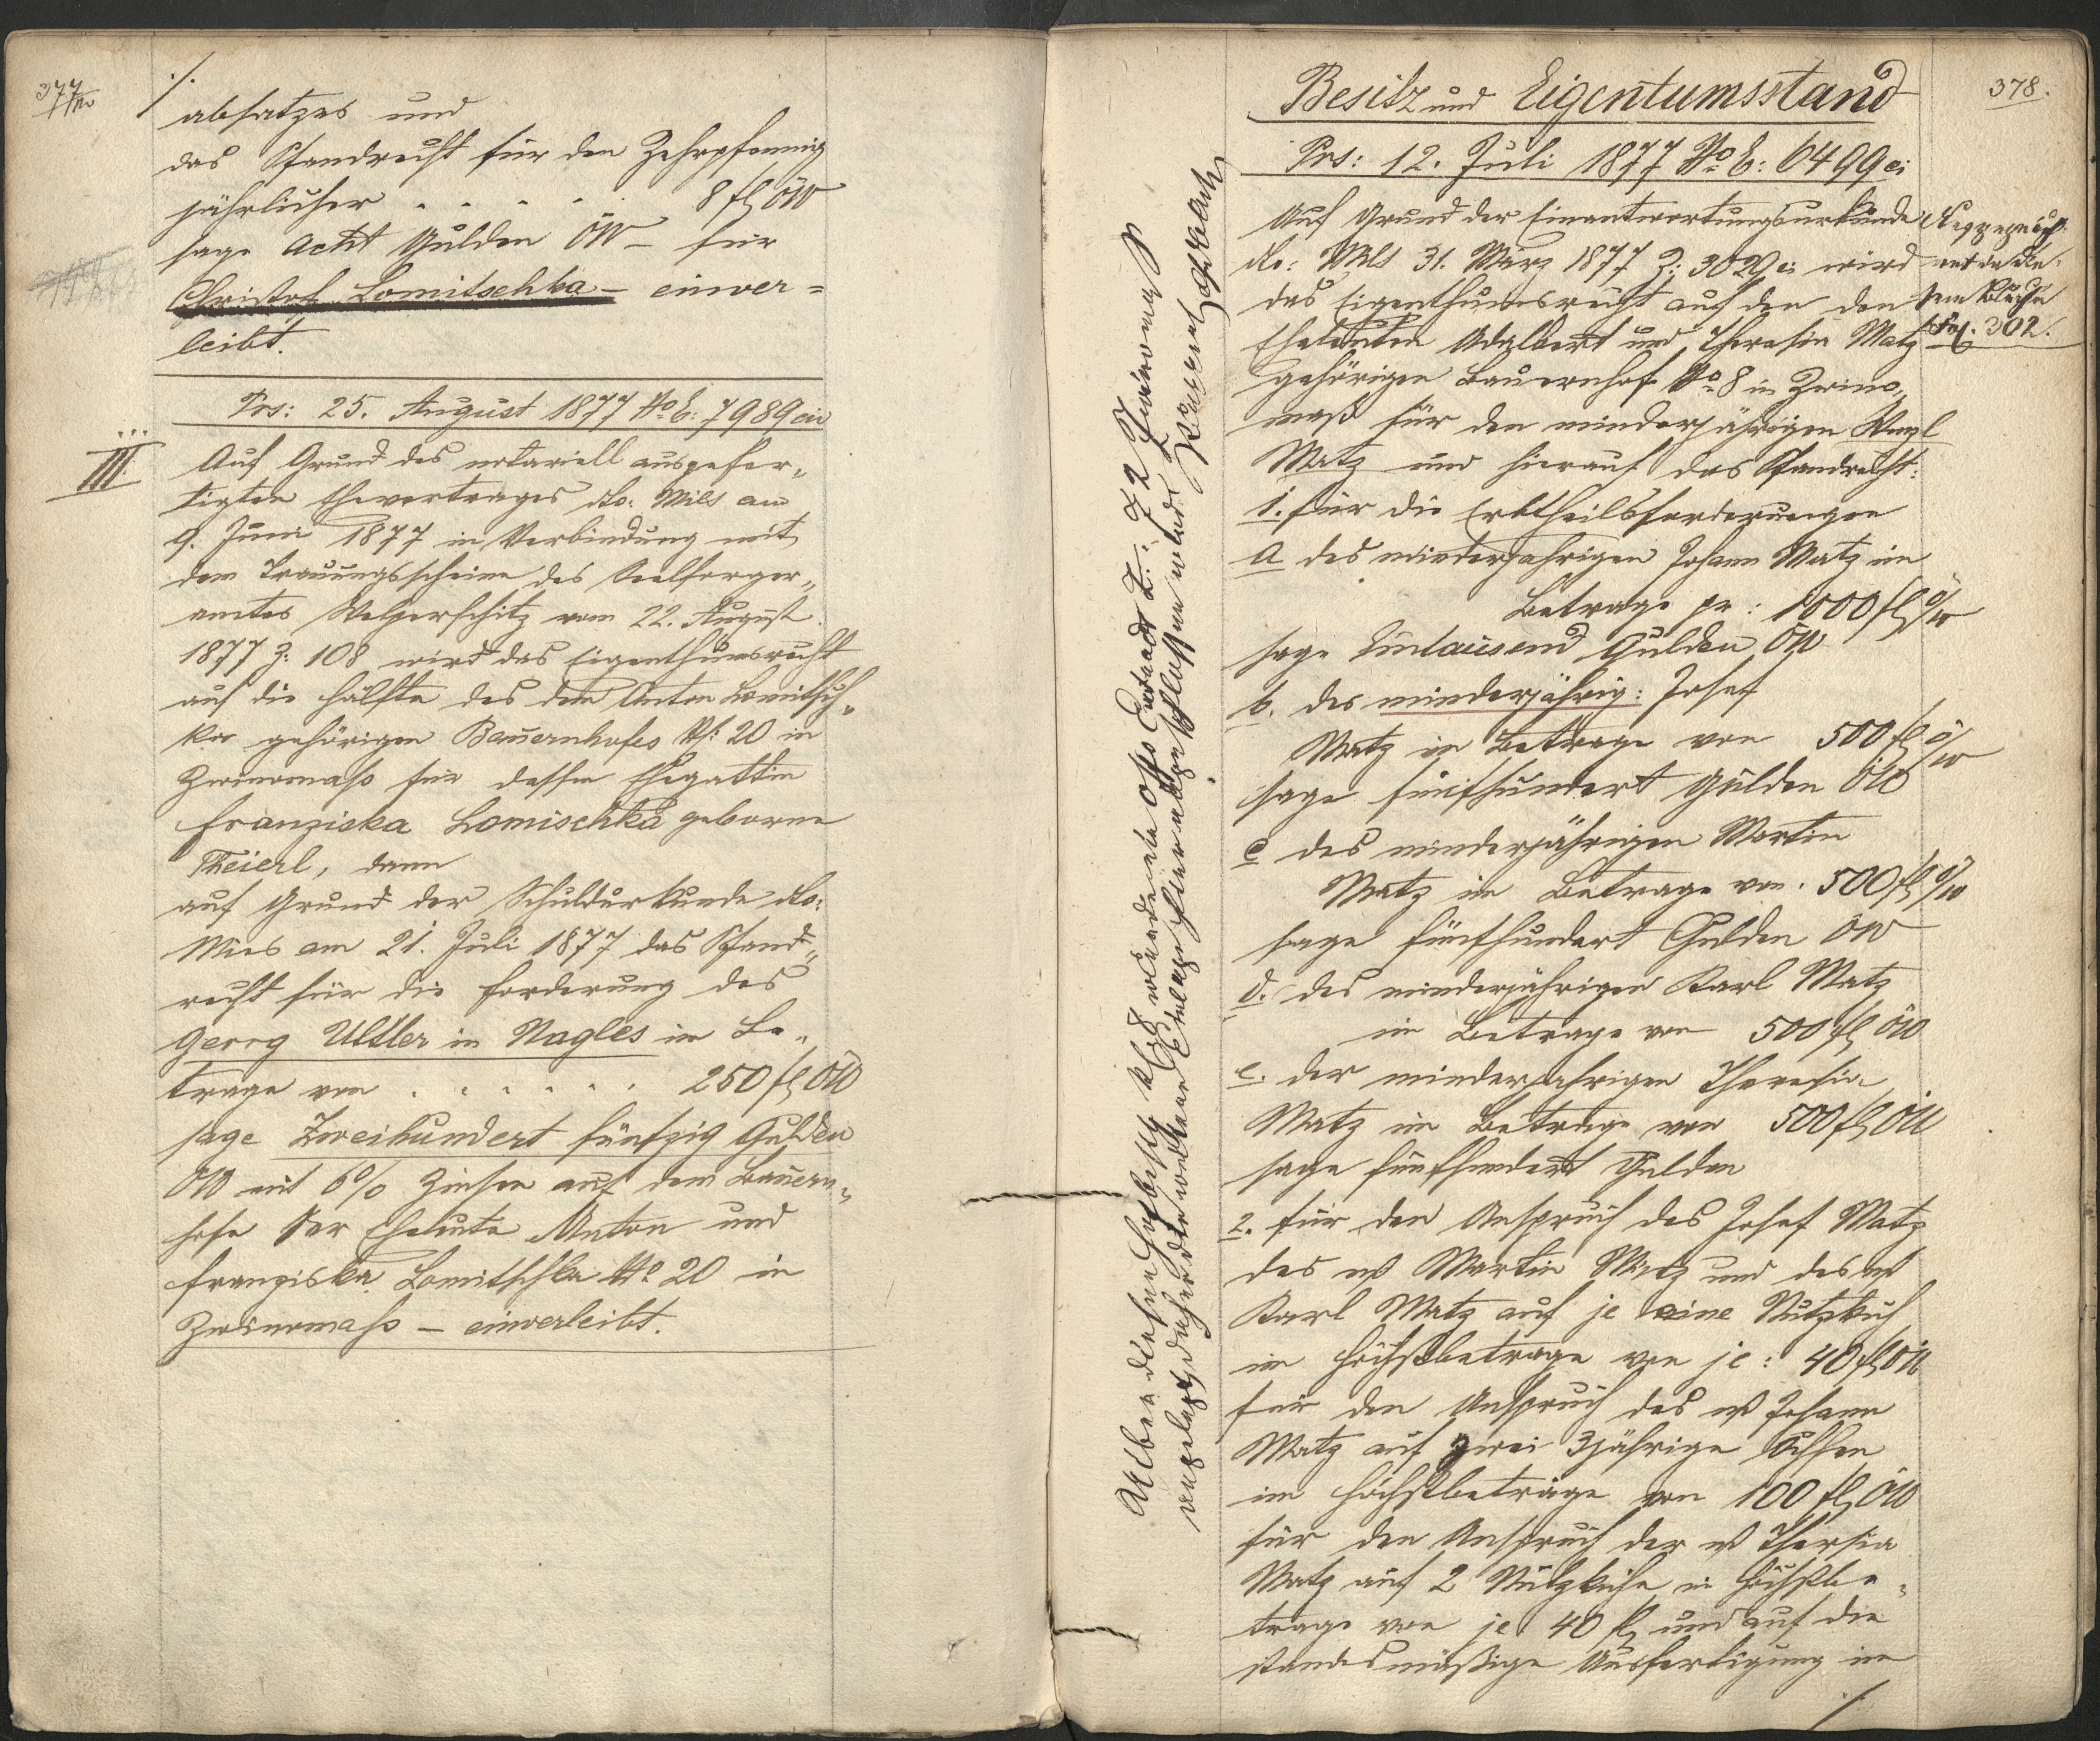 377/150
./.
absatzes und
das Pfandrecht für den Zehrpfennig
jährlicher . . . . 8 fl ÖW
sage Acht Gulden ÖW – für
Christof Lomitschka – einver=
leibt.
Prs: 25. August 1877 No E: 7989 civ
III.
Auf Grund des notariell ausgefer„
tigten Ehevertrages dto: Mies am
9. Juni 1877 in Verbindung mit
dem Trauungsscheine des Seelsorger„
amtes Welperschitz vom 22. August
1877 Z: 108 wird das Eigenthumsrecht
auf die Hälfte des dem Anton Lomitsch„
ka gehörigen Bauernhofes No: 20 in
Zwinomaß für dessen Ehegattin
Franziska Lomischka geborne
Theierl, dann
auf Grund der Schuldurkunde dto:
Mies am 21. Juli 1877 das Pfand„
recht für die Forderung des
Georg Ultler in Nagles im Be„
trage von . . . . . . 250 fl ÖW
sage Zweihundert fünfzig Gulden
ÖW mit 6% Zinsen auf dem Bauern„
hofe der Eheleute Anton und
Franziska Lomitschka No 20 in
Zwinomaß – einverleibt.
378.
Besitz und Eigentumsstand
Prs: 12. Juli 1877 No E: 6499 ci
Auf Grund der Einantwortungsurkunde
dto: Mies 31. März 1877 Z: 3029 ci wird
das Eigenthumsrecht auf den den
Eheleuten Adalbert und Theresia Matz
gehörigen Bauernhof No 8 in Zwino„
maß für den minderjährigen Wenzl
Matz und hierauf das Pfandrecht:
sem Buche
Fol. 302.
1. für die Erbtheilsforderungen
a des minderjahrigen Johann Matz im
Betrage pr: 1000 fl Ö/W
sage Eintausend Gulden ÖW
b. des minderjährig: Josef
Matz im Betrage von 500 fl Ö/W
sage fünfhundert Gulden ÖW
c des minderjährigen Martin
Matz im Betrage von. 500 fl Ö/W
sage fünfhundert Gulden ÖW
d. des minderjährigen Karl Matz
im Betrage von 500 fl ÖW
e. der minderjahrigen Theresia
Matz im Betrage von 500 fl ÖW
sage fünfhundert Gulden
2. für den Anspruch des Josef Matz
des mj Martin Matz und des mj
Karl Matz auf je eine Nutzkuh
im Höchstbetrage von je: 40 fl ÖW
für den Anspruch des mj Johann
Matz auf zwei 3jährige Ochsen
im Höchstbetrage von 100 fl ÖW
für den Anspruch der mj Thersia
Matz auf 2 Nutzkühe im Höchstbe„
trage von je 40 fl und auf die
standesmäßige Ausfertigung im
./.
Ueber diesen Hofbesitz No 8 wurde eine
angelegt, daher die weiteren Einlagen hier